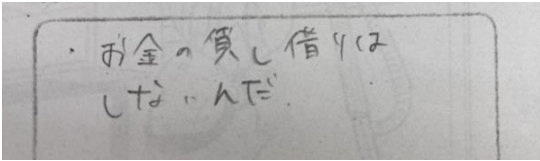 ・お金の貸し借りは
しないんだ.